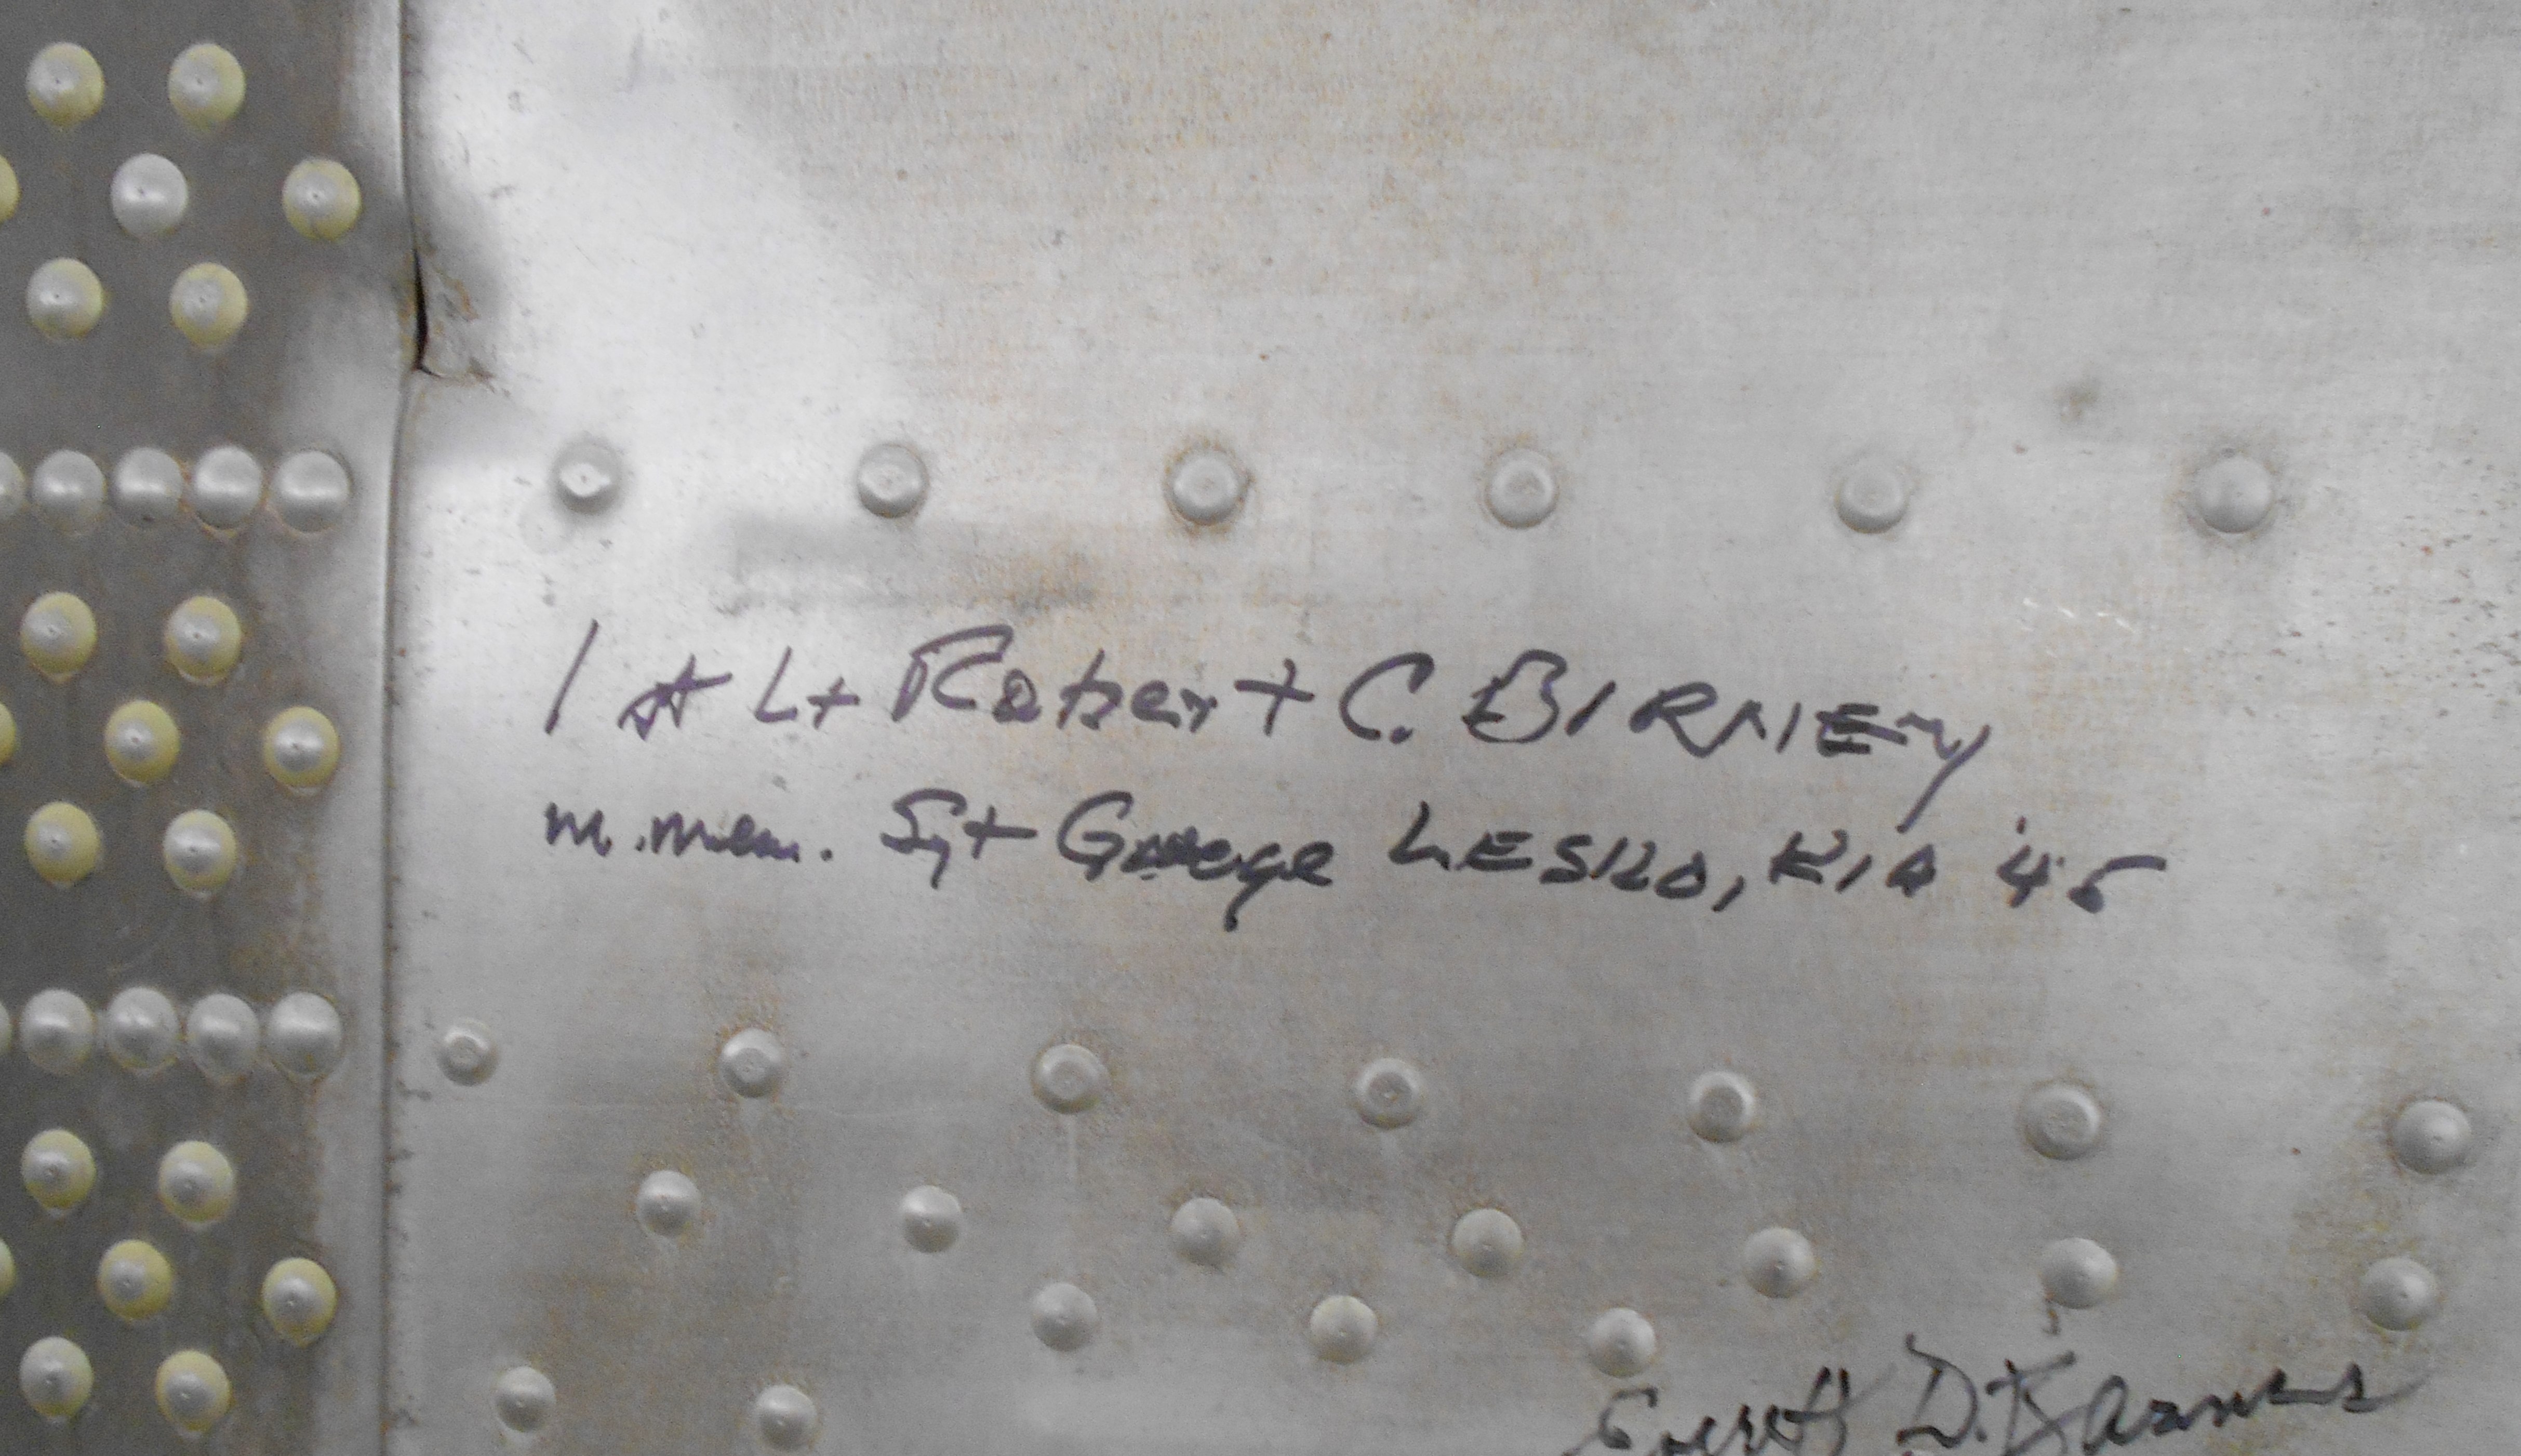 1st Lt Robert C. BIRNEY
In. mem. Sgt George LESKO, KIA '45
Everett D.